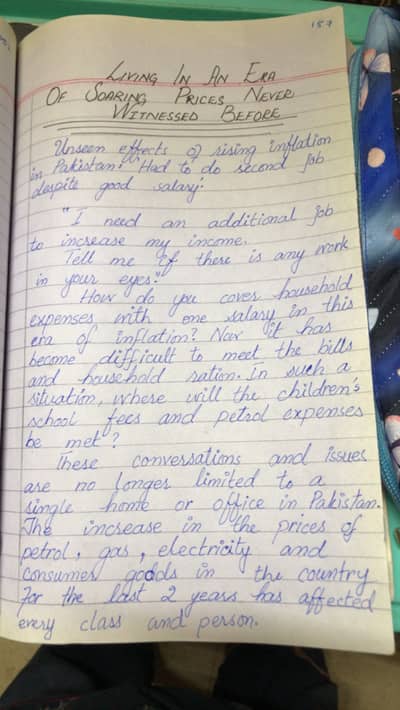 159
LIVING IN AN ERA
OF SOARING PRICES NEVER
WITNESSED BEFORE
Unseen effects of rising inflation
in Pakistan: "Had to do second job
despite good salary."
"I need an additional job
to increase my income.
Tell me if there is any work
in your eyes."
"How do you cover household
expenses with one salary in this
era of inflation? Now it has
become difficult to meet the bills
and household ration. In such a
situation, where will the children's
school fees and petrol expenses
be met"?
These conversations and issues
are no longer limited to a
single home or office in Pakistan.
The increase in the prices of
petrol, gas, electricity and
consumer goods in the country
for the last 2 years has affected
every class and person.